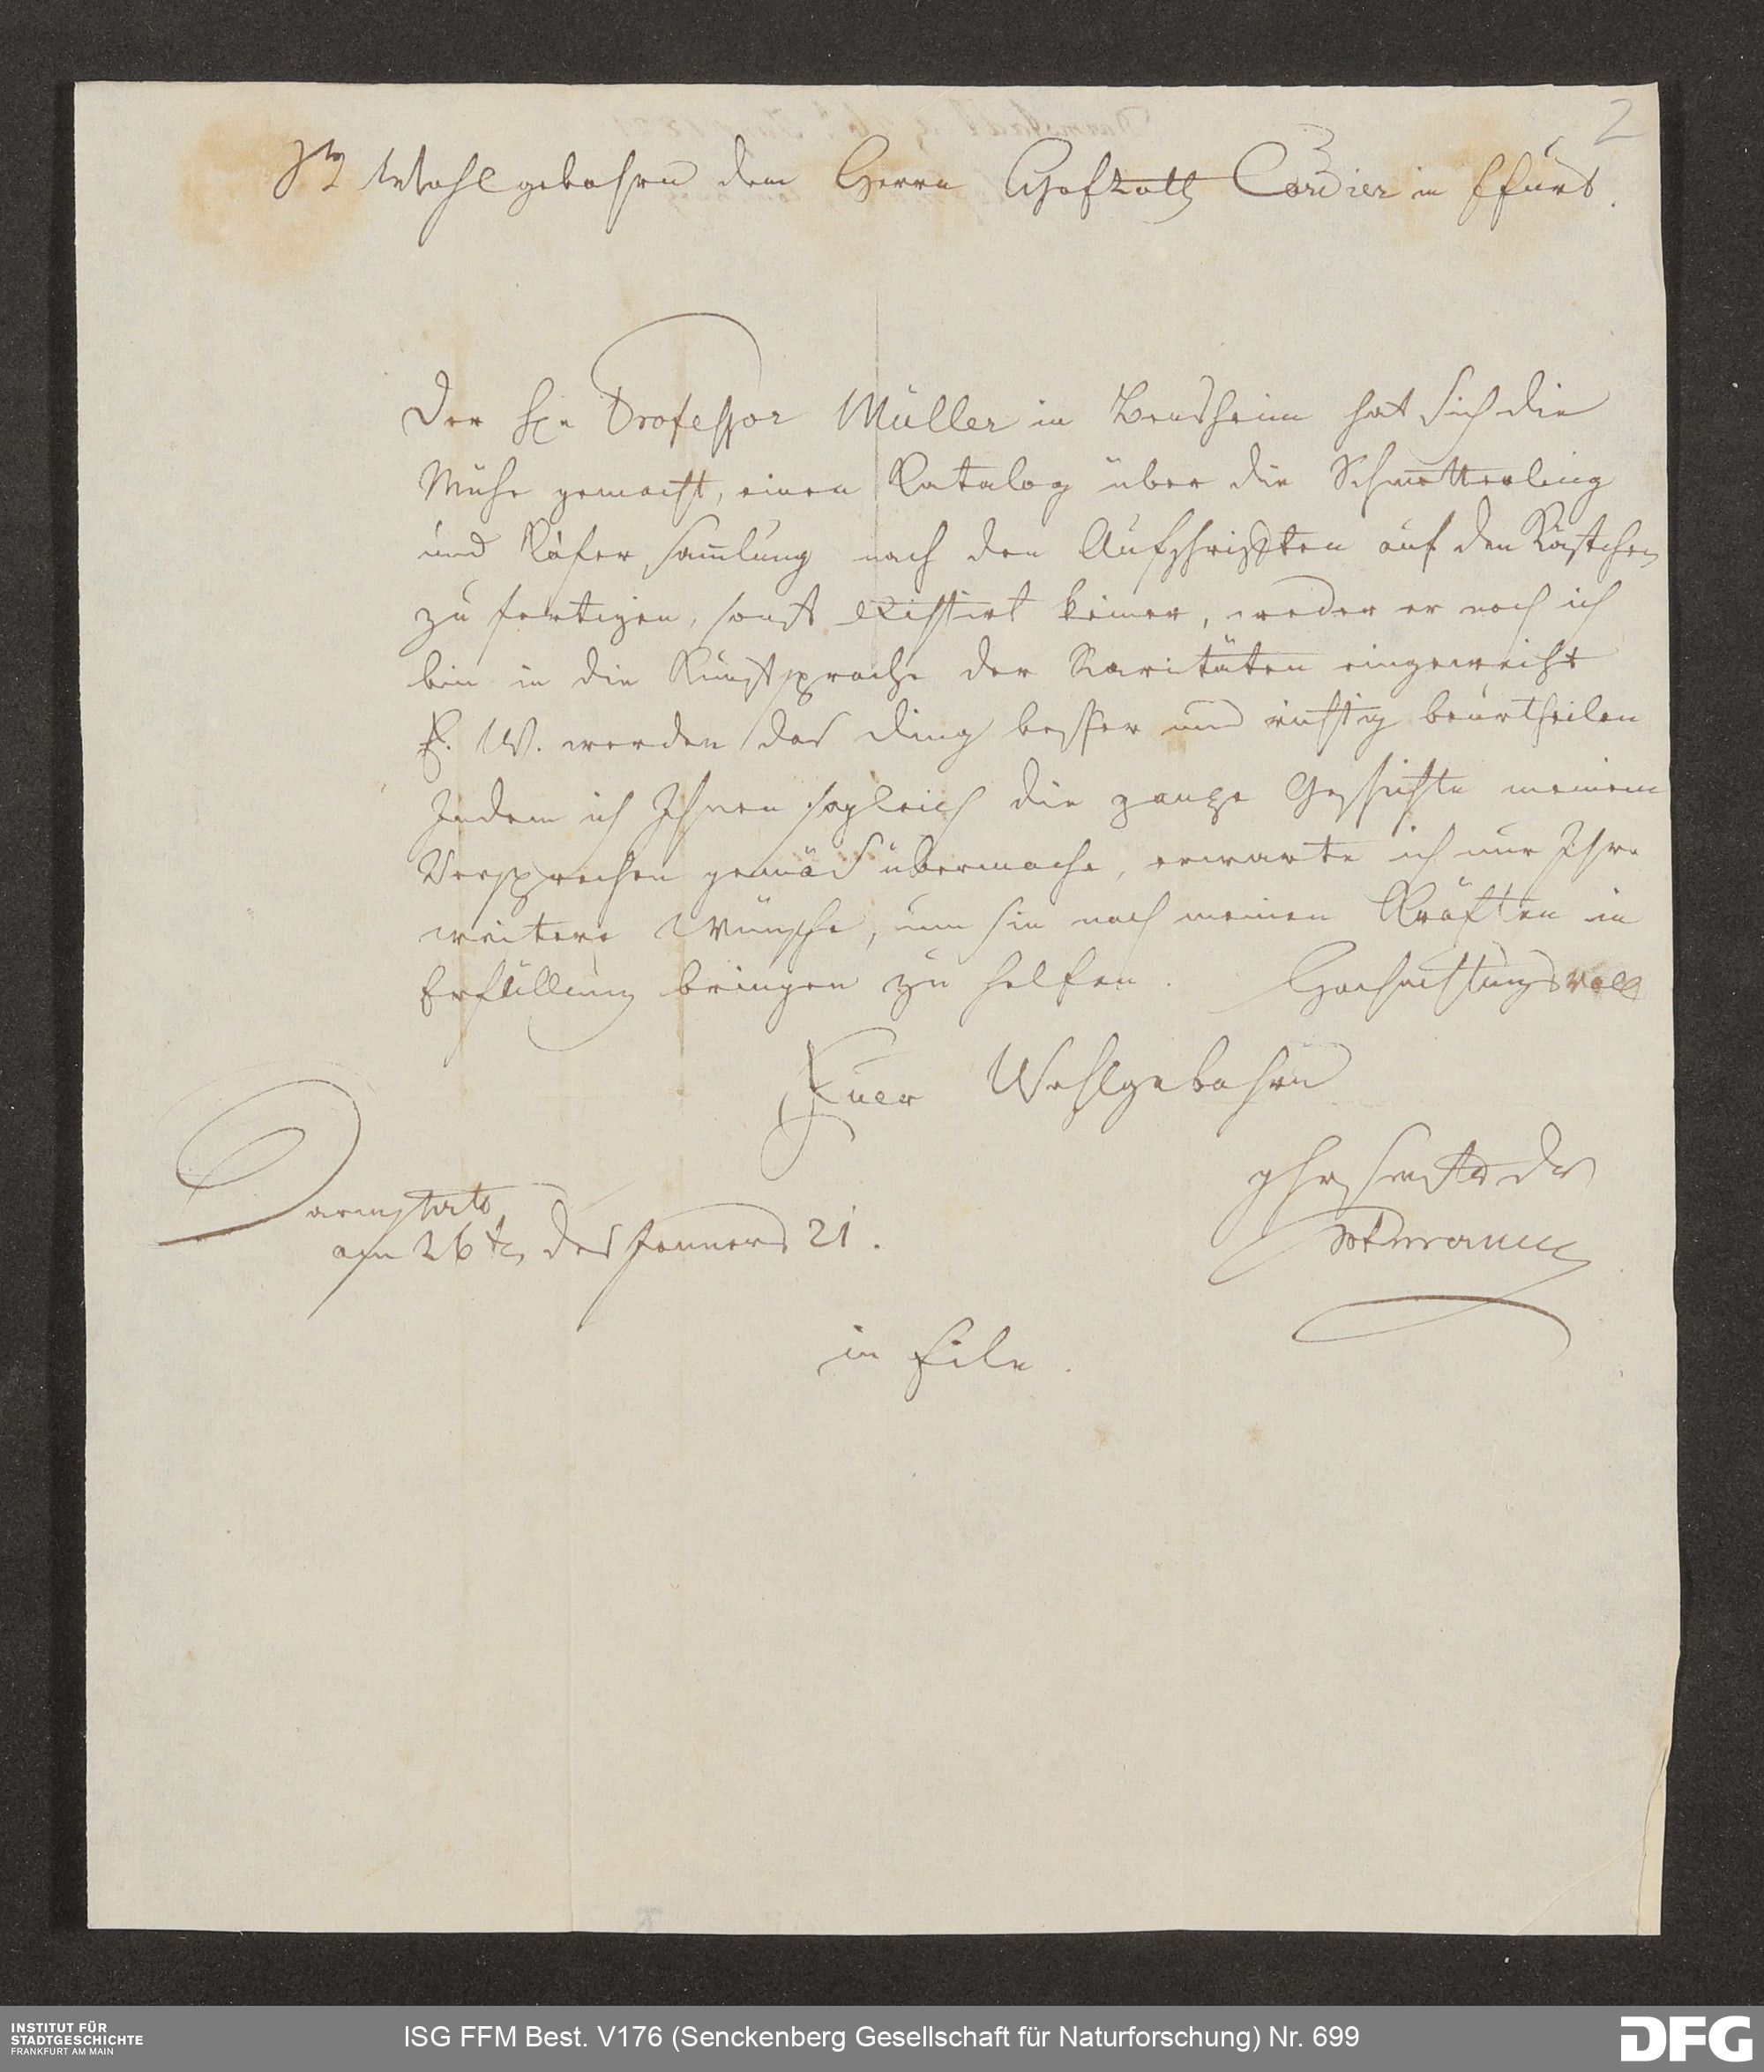 2
Sr Wohlgebohrn dem Herrn Hofrath Cordier in
Der Hr. Professor Müller in Bensheim hat sich die
Mühe gemacht, einen Katalog über die Schmetterling
und Käfer samlung nach den Aufschriften auf den Kästchen
zu fertigen, sonst existirt keiner, weder er noch ich
bin in die Kunstsprache der Raritäten eingeweiht
E. W. werden das Ding besser und richtig beurtheilen
Indem ich Ihnen sogleich die ganze Geschichte meinem
Versprechen gemäs übermache, erwarte ich nur Ihre
weitere Wünsche, um sie nach meinen Kräften in
Erfüllung bringen zu helfen. Hochachtungsvoll
Euer Wohlgebohrn
Darmstadt
am 26t. des Jenners 21.
in Eile.
INSTITUT FÜR
STADTGESCHICHTE
FRANKFURT AM MAIN
ISG FFM Best. V176 (Senckenberg Gesellschaft für Naturforschung) Nr. 699
DFG